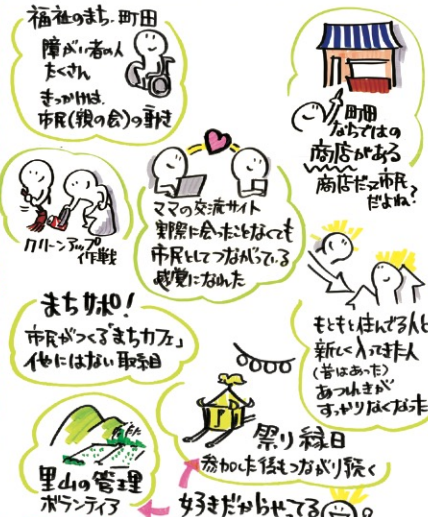 福祉のまち、町田
障がい者の人
たくさん
きっかけは、
市民(親の会)の動き
町田
ならではの
商店がある
商店だって市民
だよね?
クリーンアップ
作戦
ママの交流サイト
実際に会ったことなくても
市民としてつながっている
感覚になれた
まちサポ!
市民がつくる「まちカフェ」
他にはない取組
もともと住んでる人と
新しく入ってきた人
(昔はあった)
あつれきが
すっかりなくなった
祭り縁日
参加した後もつながり続く
里山の管理
ボランティア
好きだからやってる